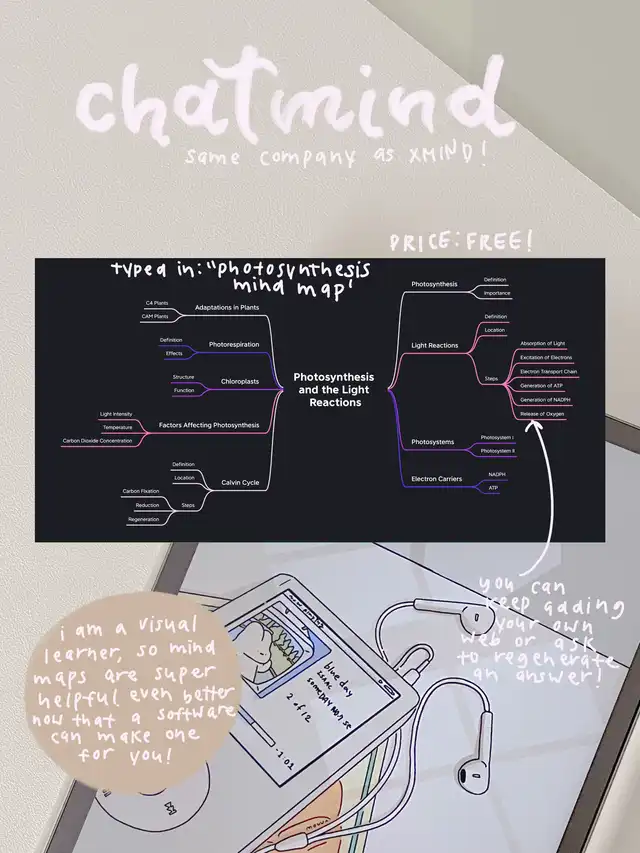 chatmind
same company as XMIND!
PRICE: FREE!
typed in: "photosynthesis
mind map'
Photosynthesis
and the Light
Reactions
Adaptations in Plants
C4 Plants
CAM Plants
Photorespiration
Definition
Effects
Chloroplasts
Structure
Function
Factors Affecting Photosynthesis
Light Intensity
Temperature
Carbon Dioxide Concentration
Calvin Cycle
Definition
Location
Steps
Carbon Fixation
Reduction
Regeneration
Photosynthesis
Definition
Importance
Light Reactions
Definition
Location
Steps
Absorption of Light
Excitation of Electrons
Electron Transport Chain
Generation of ATP
Generation of NADPH
Release of Oxygen
Photosystems
Photosystem I
Photosystem II
Electron Carriers
NADPH
ATP
you can
keep adding
your own
web or ask
to regenerate
an answer!
i am a visual
learner, so mind
maps are super
helpful even better
now that a software
can make one
for you!
blue day
someday
2 of 12
-1:02